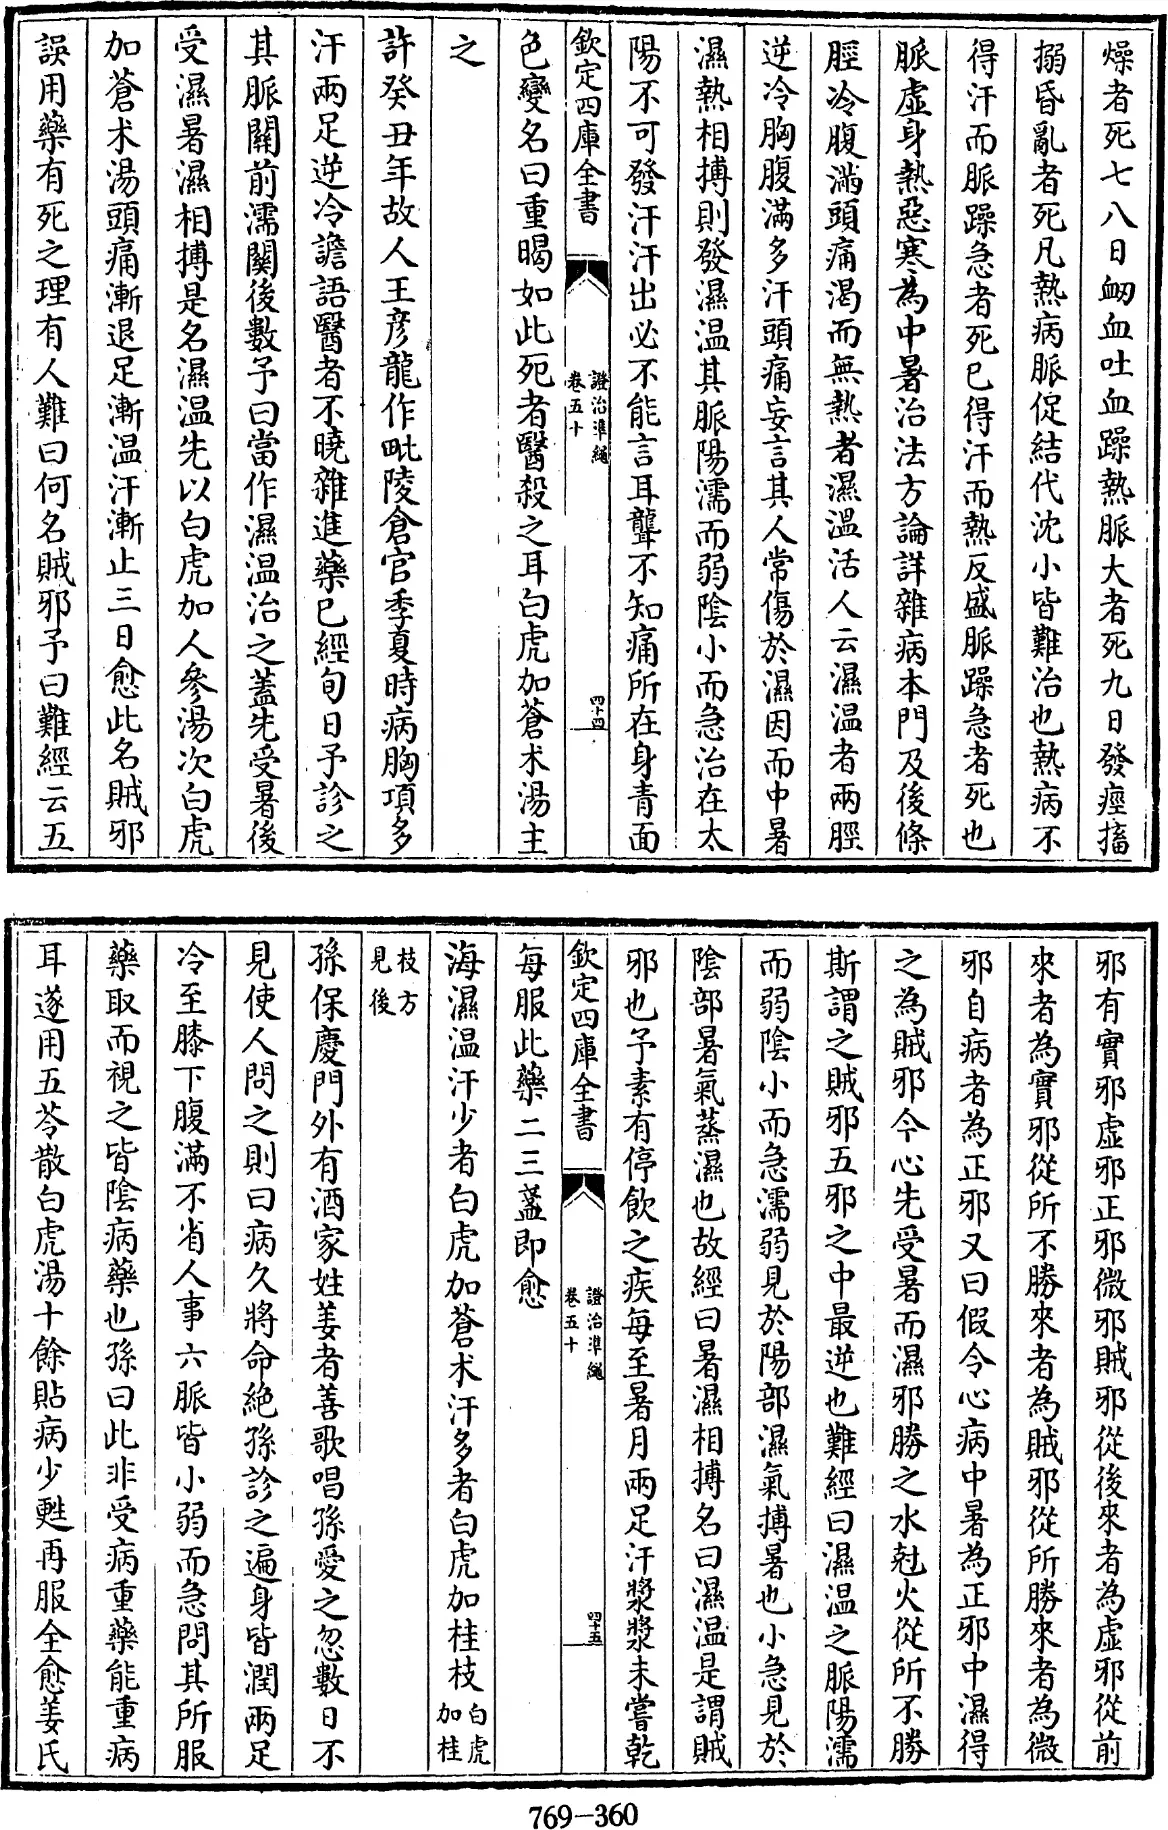 燥者死七八日衄血吐血躁熱脈大者死九日發痙搐
搦昏亂者死凡熱病脈促結代沈小皆難治也熱病不
得汗而脈躁急者死已得汗而熱反盛脈躁急者死也
脈虛身熱惡寒為中暑治法方論詳雜病本門及後條
脛冷腹滿頭痛渴而無熱者濕溫活人云濕温者兩脛
逆冷胸腹滿多汗頭痛妄言其人常傷於濕因而中暑
濕熱相搏則發濕温其脈陽濡而弱陰小而急治在太
陽不可發汗汗出必不能言耳聾不知痛所在身青面
欽定四庫全書
證治準繩
卷五十
四十四
色變名曰重暍如此死者醫殺之耳白虎加蒼术湯主
之
許癸丑年故人王彦龍作毗陵倉官季夏時病胸項多
汗兩足逆冷譫語醫者不曉雜進藥已經旬日予診之
其脈關前濡關後數予曰當作濕温治之蓋先受暑後
受濕暑濕相搏是名濕温先以白虎加人參湯次白虎
加蒼术湯頭痛漸退足漸温汗漸止三日愈此名賊邪
誤用藥有死之理有人難曰何名賊邪予曰難經云五
邪有實邪虛邪正邪微邪賊邪從後來者為虛邪從前
來者為實邪從所不勝來者為賊邪從所勝來者為微
邪自病者為正邪又曰假令心病中暑為正邪中濕得
之為賊邪今心先受暑而濕邪勝之水尅火從所不勝
斯謂之賊邪五邪之中最逆也難經曰濕温之脈陽濡
而弱陰小而急濡弱見於陽部濕氣搏暑也小急見於
陰部暑氣蒸濕也故經曰暑濕相搏名曰濕温是謂賊
邪也予素有停飲之疾每至暑月兩足汗漿漿未嘗乾
欽定四庫全書
證治準繩
卷五十
四十五
每服此藥二三盞即愈
海濕温汗少者白虎加蒼术汗多者白虎加桂枝白虎
加桂
枝方
見後
孫保慶門外有酒家姓姜者善歌唱孫愛之忽數日不
見使人問之則曰病久將命絶孫診之遍身皆潤兩足
冷至膝下腹滿不省人事六脈皆小弱而急問其所服
藥取而視之皆陰病藥也孫曰此非受病重藥能重病
耳遂用五苓散白虎湯十餘貼病少甦再服全愈姜氏
769-360